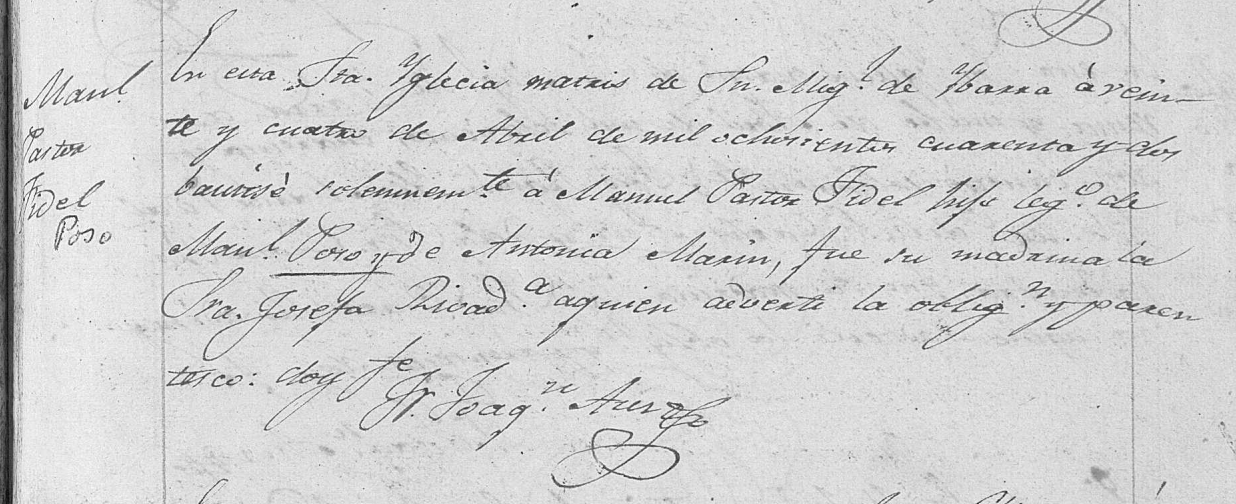 Manl.
Pastor
Fidel
Poso
En esta Sta. Yglecia matris de Sn. Migl. de Ybarra à vein-
te y cuatro de Abril de mil ochosientos cuarenta y dos
bautisè solemnemte à Manuel Pastor Fidel hijo lego. de
Manl. Poso y de Antonia Marin, fue su madrina la
Sra. Josefa Rivada. aquien adverti la oblign. y paren
tesco: doy fe
Fr. Joaqn.